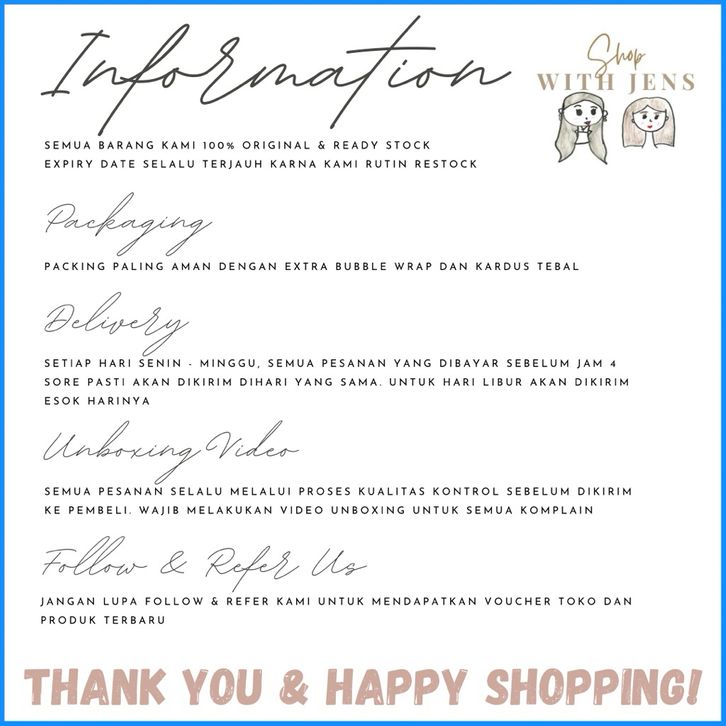 Information
Shop
WITH JENS
SEMUA BARANG KAMI 100% ORIGINAL & READY STOCK
EXPIRY DATE SELALU TERJAUH KARNA KAMI RUTIN RESTOCK
Packaging
PACKING PALING AMAN DENGAN EXTRA BUBBLE WRAP DAN KARDUS TEBAL
Delivery
SETIAP HARI SENIN - MINGGU, SEMUA PESANAN YANG DIBAYAR SEBELUM JAM 4
SORE PASTI AKAN DIKIRIM DIHARI YANG SAMA. UNTUK HARI LIBUR AKAN DIKIRIM
ESOK HARINYA
Unboxing Video
SEMUA PESANAN SELALU MELALUI PROSES KUALITAS KONTROL SEBELUM DIKIRIM
KE PEMBELI. WAJIB MELAKUKAN VIDEO UNBOXING UNTUK SEMUA KOMPLAIN
Follow & Refer Us
JANGAN LUPA FOLLOW & REFER KAMI UNTUK MENDAPATKAN VOUCHER TOKO DAN
PRODUK TERBARU
THANK YOU & HAPPY SHOPPING!